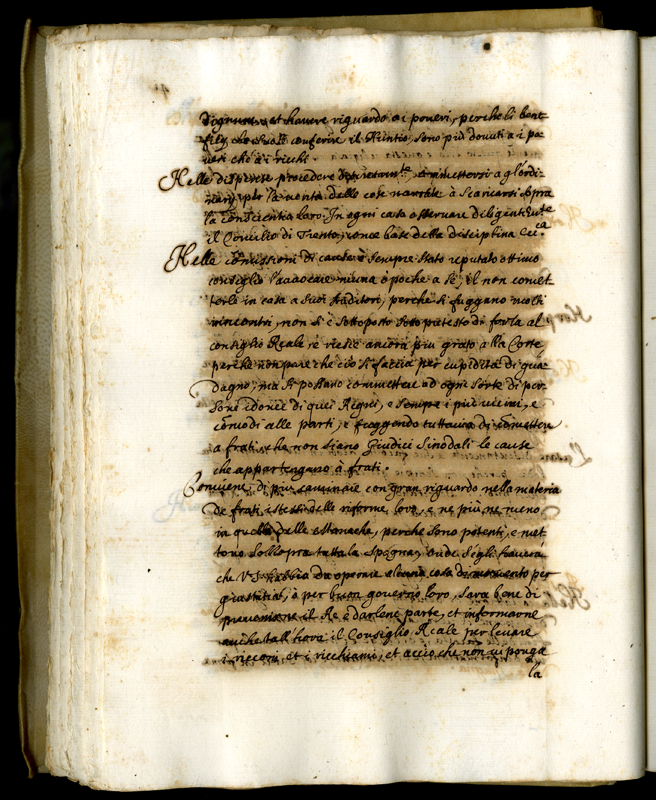 et havere riguardo a i poveri, perche li bene
ficij, che suole conferire il Nuntio, sono più dovuti a i po
veri che a i ricchi.
Nelle dispense procedere commettersi a gl'ordi
narij, per la verità delle cose narrate à scaricarsi sopra
la conscientia loro. In ogni caso osservare diligentemte
il Concilio di Trento, come base della disciplina
Nelle comissioni di cause è sempre stato reputato ottimo
consiglio l'avocare niuna ò poche a se, il non comet
terle in casa a suoi Auditori, perche si fuggano molti
rincontri, non si è sottoposto sotto pretesto di forza al
consiglio Reale et riesce ancora più grato alla Corte
perche non pare che ciò si faccia per cupidità di gua
dagno, ma si possano commettere ad ogni sorte di per
sone idonee di quei Regni, e sempre i più vicini, e
comodi alle parti, e fuggendo tuttavia di commettere
a frati, che non siano Giudici Sinodali le cause
che appartengano à frati.
Conviene di più caminare con gran riguardo nella materia
de frati, istessi delle riforme loro, e ne più ne meno
in quella delle Monache, perche sono potenti, e met
tono sossopra tutta la Spagna, onde se gli
che V.S. habbia da operare alcuna cosa di momento per
giustitia, ò per buon governo loro, sarà bene di
prevenirne il Re e darlene parte, et informarne
anche tall'hora il Consiglio Reale per levare
i ricorsi, et i richiami, et acciò che non vi ponga
la